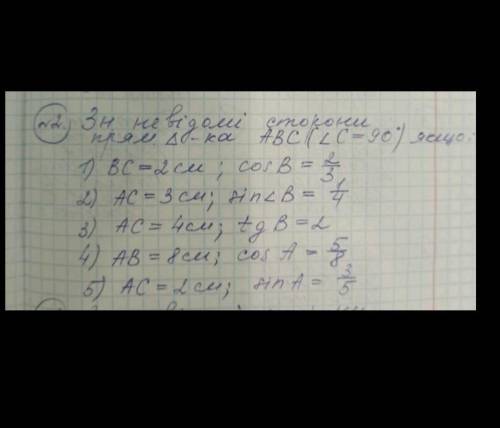 №2. Зн невідомі сторони
прям Δ-ка ABC (∠C=90°) якщо:
1) BC=2см; cosB=2/3
2) AC=3см; sin∠B=1/4
3) AC=4см; tgB=2
4) AB=8см; cosA=5/8
5) AC=2см; sinA=3/5